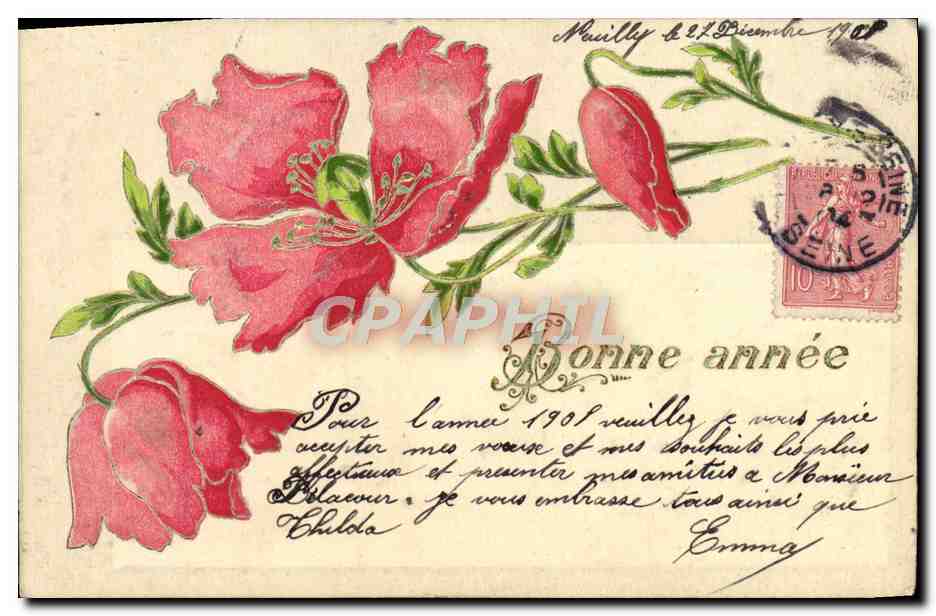 Neuilly le 27 Décembre 1901
SEINE
SEINE
10
CPAPHIL
Bonne année
Pour l'année 1901 veuillez je vous prie
accepter mes voeux et mes souhaits les plus
affectueux et presenter mes amitiés a Monsieur
Délacour. je vous embrasse tous ainsi que
Thilda
Emma